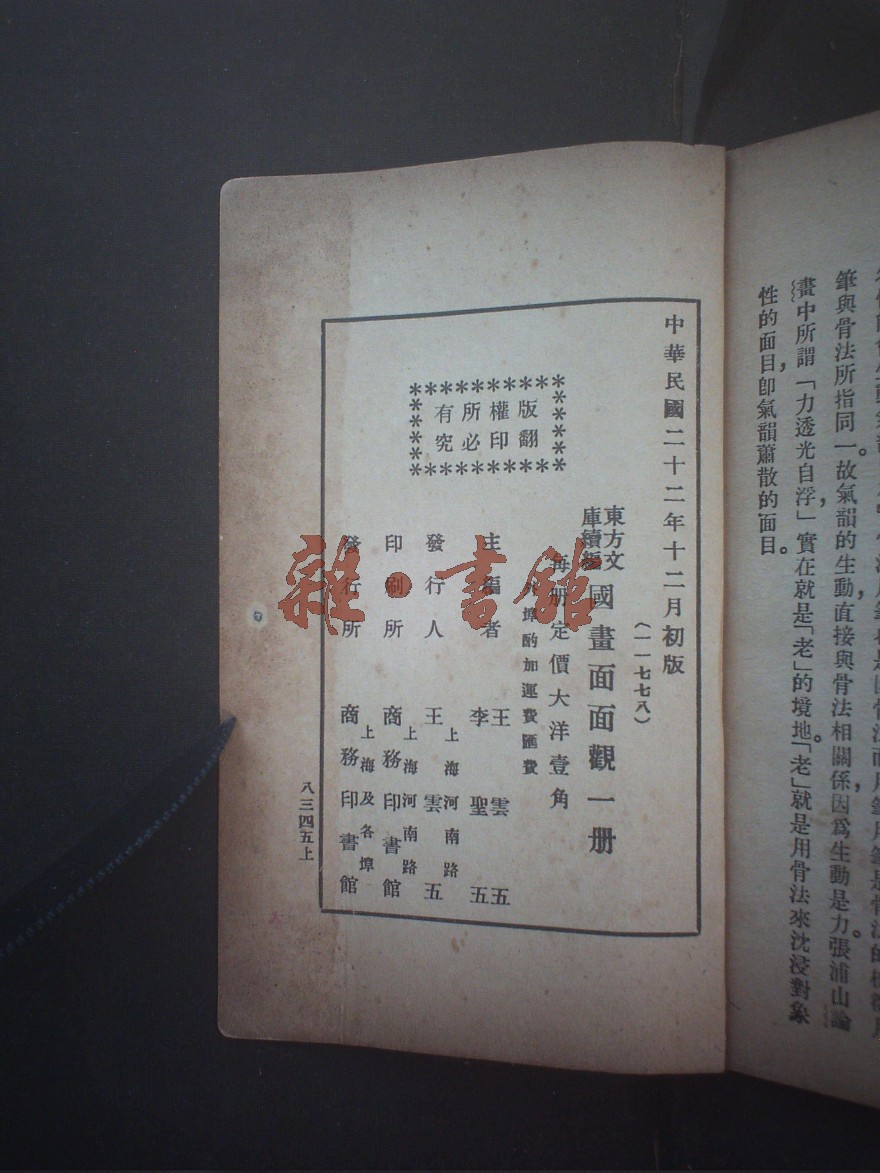 筆與骨法所指同一。故氣韻的生動,直接與骨法相關係,因爲生動是力。張浦山論
畫中所謂「力透光自浮」,實在就是「老」的境地。「老」就是用骨法來沈浸對象
性的面目,卽氣韻蕭散的面目。
中華民國二十二年十二月初版
(一一七七八)
東方文
庫續編
國畫面面觀一册
每册定價大洋壹角
外埠酌加運費匯費
版權所有
翻印必究
主編者
王雲五
李聖五
發行人
上海河南路
王雲五
印刷所
上海河南路
商務印書館
發行所
上海及各埠
商務印書館
八三四五上
雜·書館